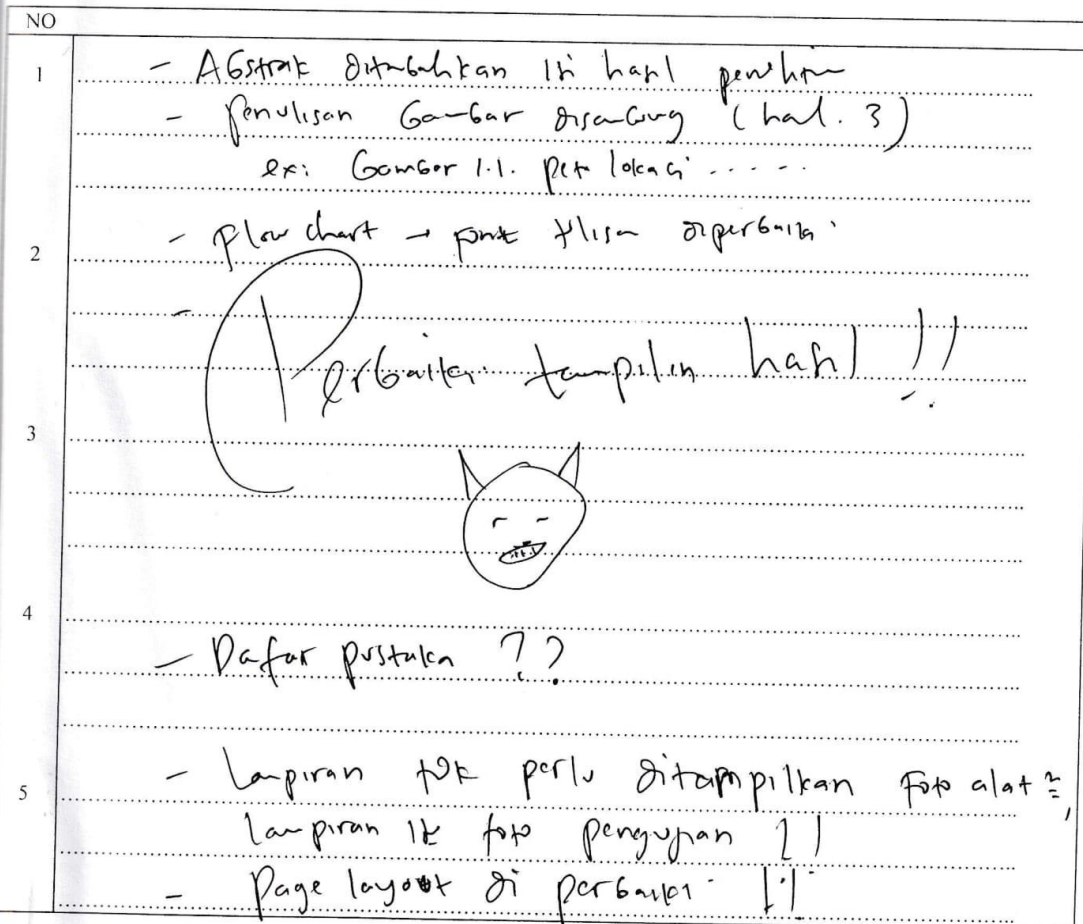 NO
1
- Abstrak ditambahkan isi hasil penelitian
- Penulisan Gambar disambung (hal. 3)
ex: Gambar 1.1. peta lokasi .....
2
- Flow chart → font tulisan diperbaiki
- Perbaiki tampilan hasil !!
3
4
- Daftar pustaka ??
5
- Lampiran tdk perlu ditampilkan foto alat²,
lampiran foto pengujian !!
- Page layout di perbaiki !!